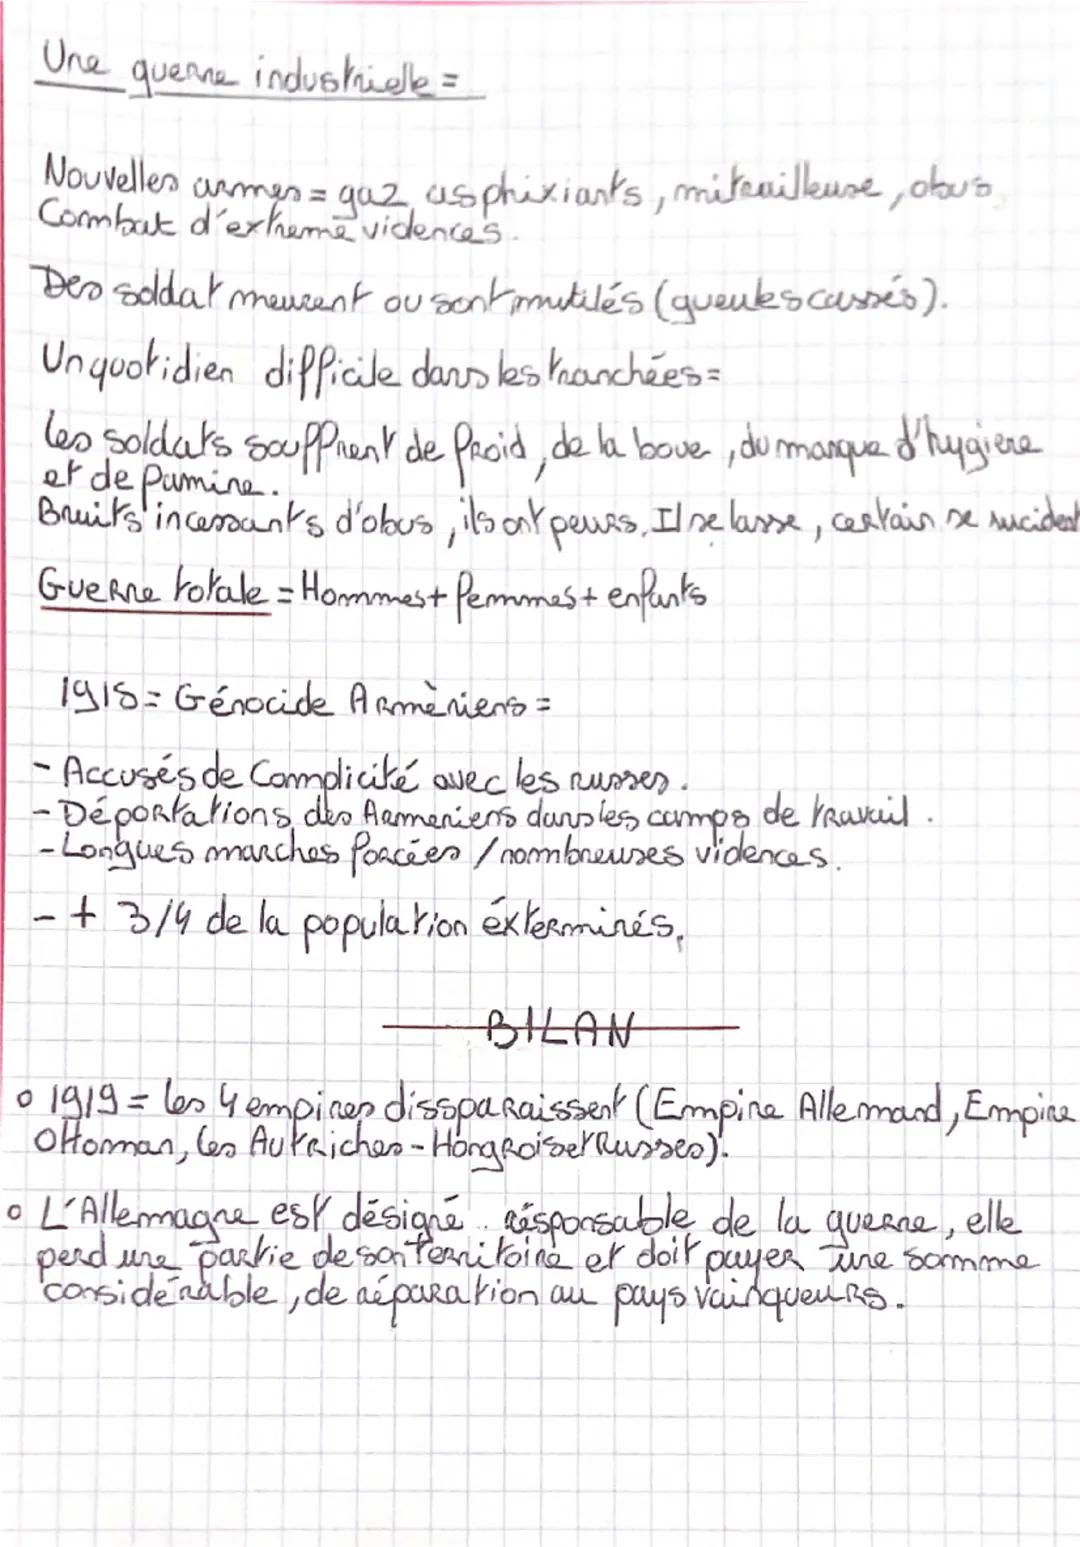 Une guerre industrielle =
Nouvelles armes = gaz asphixiants, mitrailleuse, obus,
Combat d'extreme violences.
Des soldat meurent ou sont mutilés (gueules cassés).
Un quotidien difficile dans les tranchées =
Les soldats souffrent de froid, de la boue, du manque d'hygiere
et de famine.
Bruits incessants d'obus, ils ont peurs. Il se lasse, certain se sucident
Guerre totale = Hommes + femmes + enfants
1915 = Génocide Armèniens =
- Accusés de Complicité avec les russes.
- Déportations des Armeniens dans les camps de travail.
- Longues marches forcées / nombreuses violences.
- + 3/4 de la population éxterminés.
BILAN
o 1919 = les 4 empires dissparaissent (Empire Allemand, Empire
Ottoman, les Autriches-Hongrois et Russes).
o L'Allemagne est désigné résponsable de la guerre, elle
perd une partie de son territoire et doit payer une somme
considérable, de réparation au pays vainqueurs.